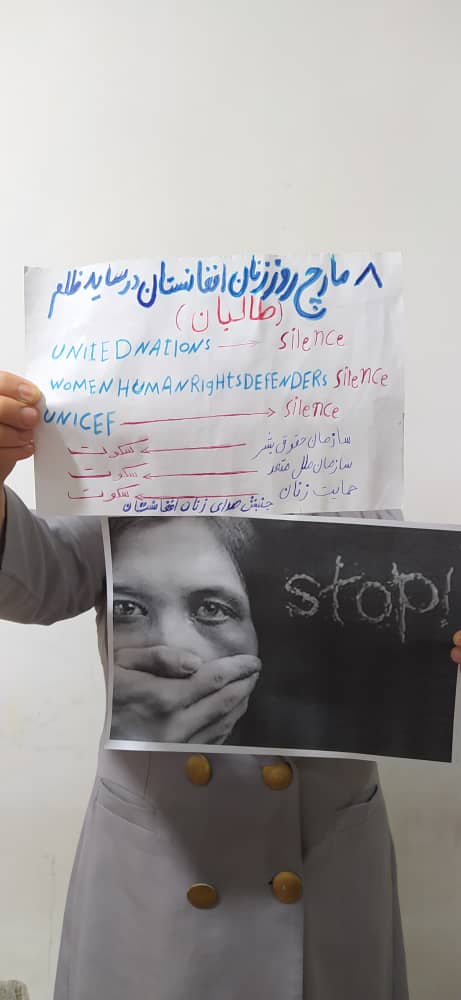 ۸ مارچ روز زنان افغانستان در سایه ظلم
(طالبان)
UNITED NATIONS → Silence
WOMEN HUMAN RIGHTS DEFENDERS Silence
UNICEF → Silence
سازمان حقوق بشر ← سکوت
سازمان ملل متحد ← سکوت
حمایت زنان ← سکوت
جنبش صدای زنان افغانستان
stop!